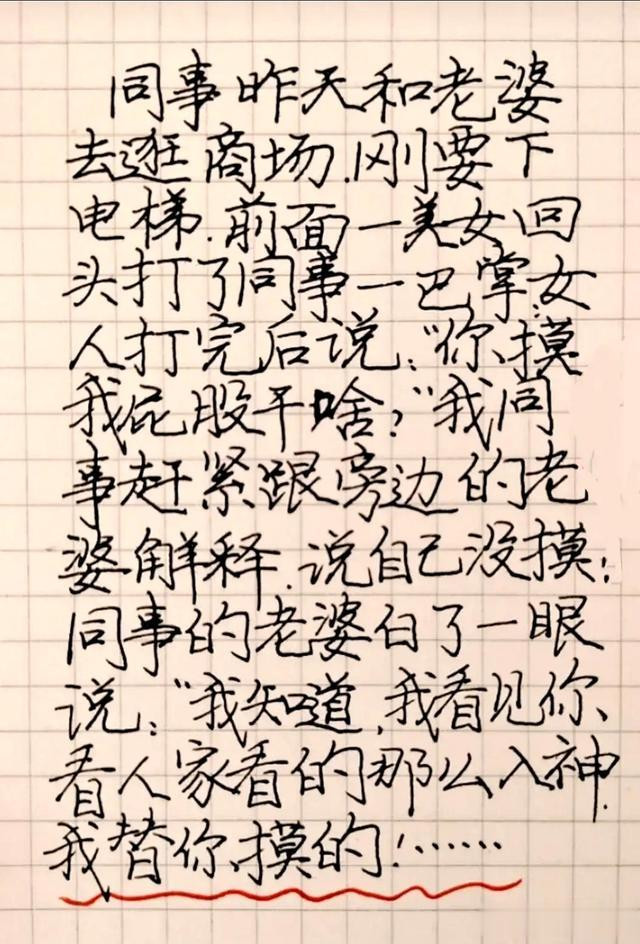 同事昨天和老婆
去逛商场.刚要下
电梯.前面一美女回
头打了同事一巴掌.女
人打完后说:“你摸
我屁股干啥?”我同
事赶紧跟旁边的老
婆解释.说自己没摸;
同事的老婆白了一眼
说:“我知道,我看见你
看人家看的那么入神.
我替你摸的!……